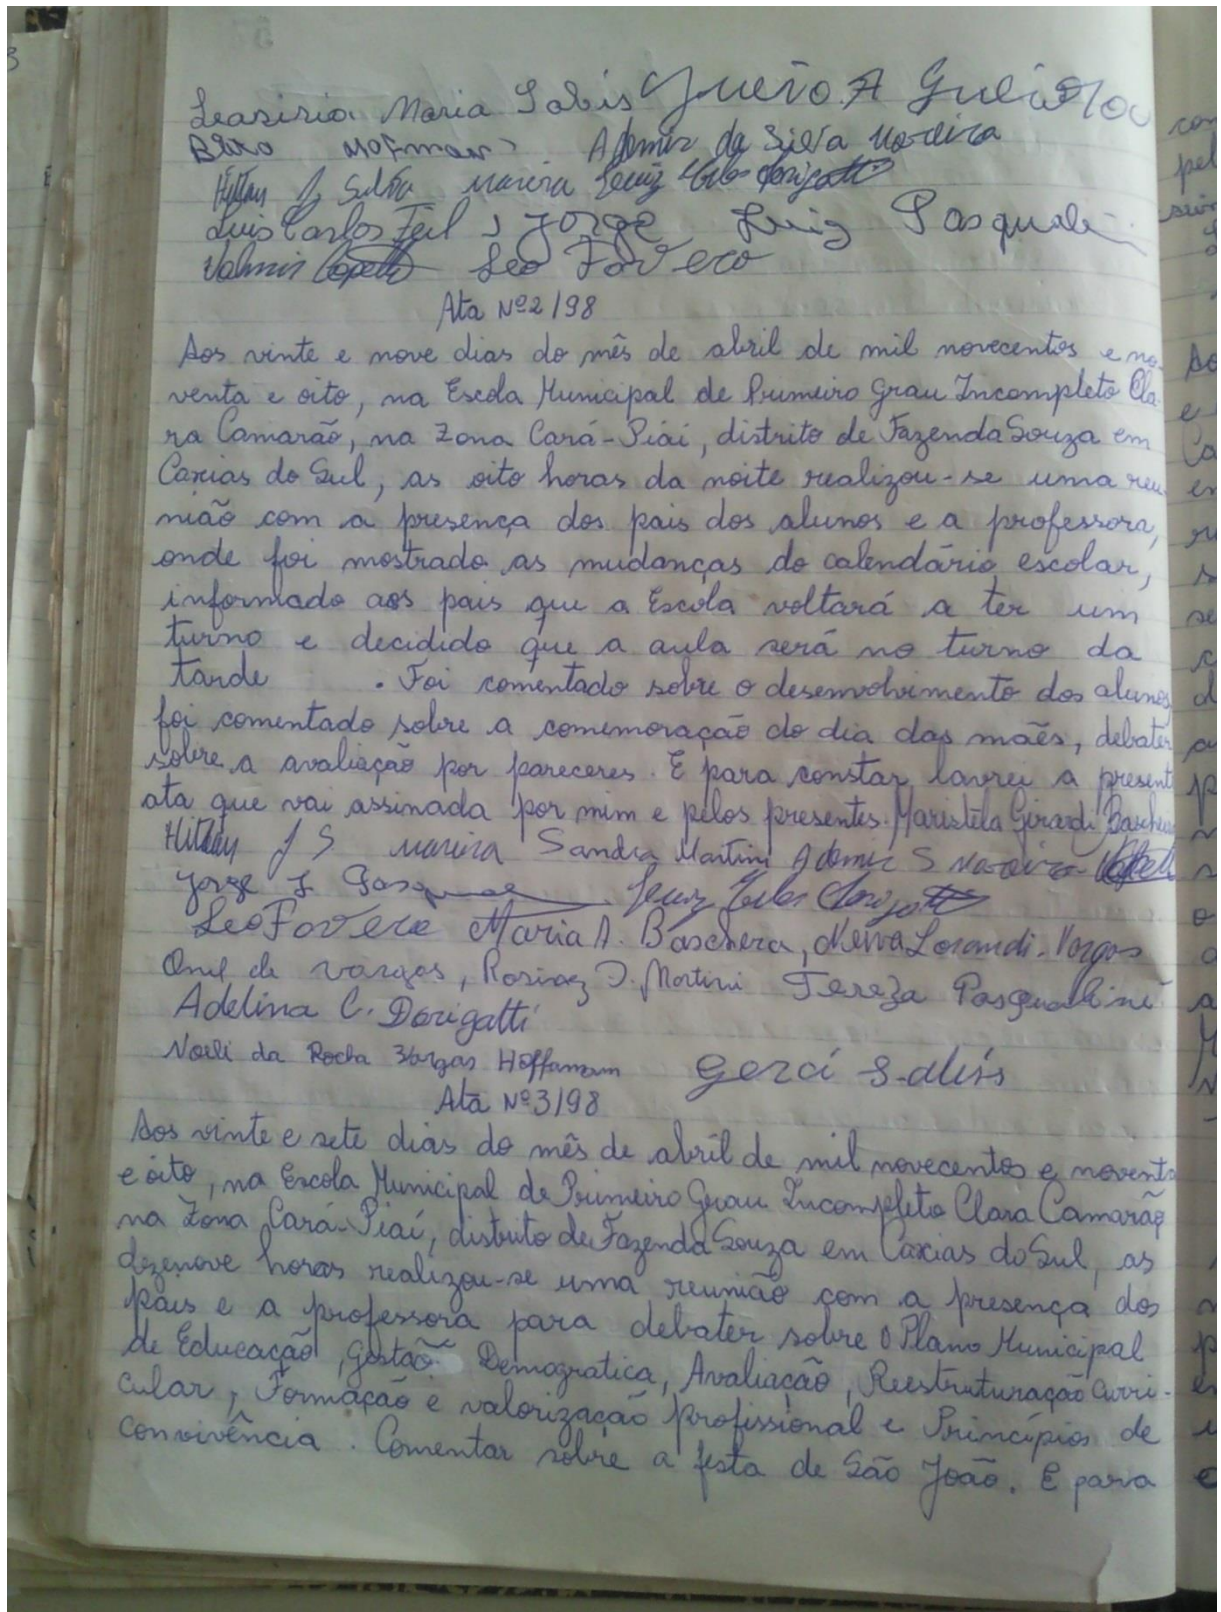 Maria
Ademir da Silva Moreira
Silva Moreira Luiz
Luis Carlos Feil, Jorge Luiz Pasqualini
Valmir Copetti Leo Favero
Ata Nº2/98
Aos vinte e nove dias do mês de abril de mil novecentos e no-
venta e oito, na Escola Municipal de Primeiro Grau Incompleto Cla-
ra Camarão, na Zona Cará-Piái, distrito de Fazenda Souza em
Caxias do Sul, as oito horas da noite realizou-se uma reu-
nião com a presença dos pais dos alunos e a professora,
onde foi mostrado as mudanças do calendário escolar,
informado aos pais que a Escola voltará a ter um
turno e decidido que a aula será no turno da
tarde . Foi comentado sobre o desenvolvimento dos alunos,
foi comentado sobre a comemoração do dia das mães, debater
sobre a avaliação por pareceres. E para constar lavrei a present
ata que vai assinada por mim e pelos presentes. Maristela Girardi
J S Moreira Sandra Martini Ademir S Moreira
Jorge L Luiz
Leo Favero Maria A. Baschera, Neiva Lorandi Vargas
de Vargas, Martini Tereza Pasqualini
Adelina C. Dorigatti
Noeli da Rocha Vargas Hoffamam Gerci
Ata Nº3/98
Aos vinte e sete dias do mês de abril de mil novecentos e noventa
e oito, na Escola Municipal de Primeiro Grau Incompleto Clara Camarão
na Zona Cará-Piaí, distrito de Fazenda Souza em Caxias do Sul, as
dezenove horas realizou-se uma reunião com a presença dos
pais e a professora para debater sobre o Plano Municipal
de Educação, Gestão Demogratica, Avaliação, Reestruturação Curri-
cular, Formação e valorização profissional e Princípios de
convivência. Comentar sobre a festa de São João. E para